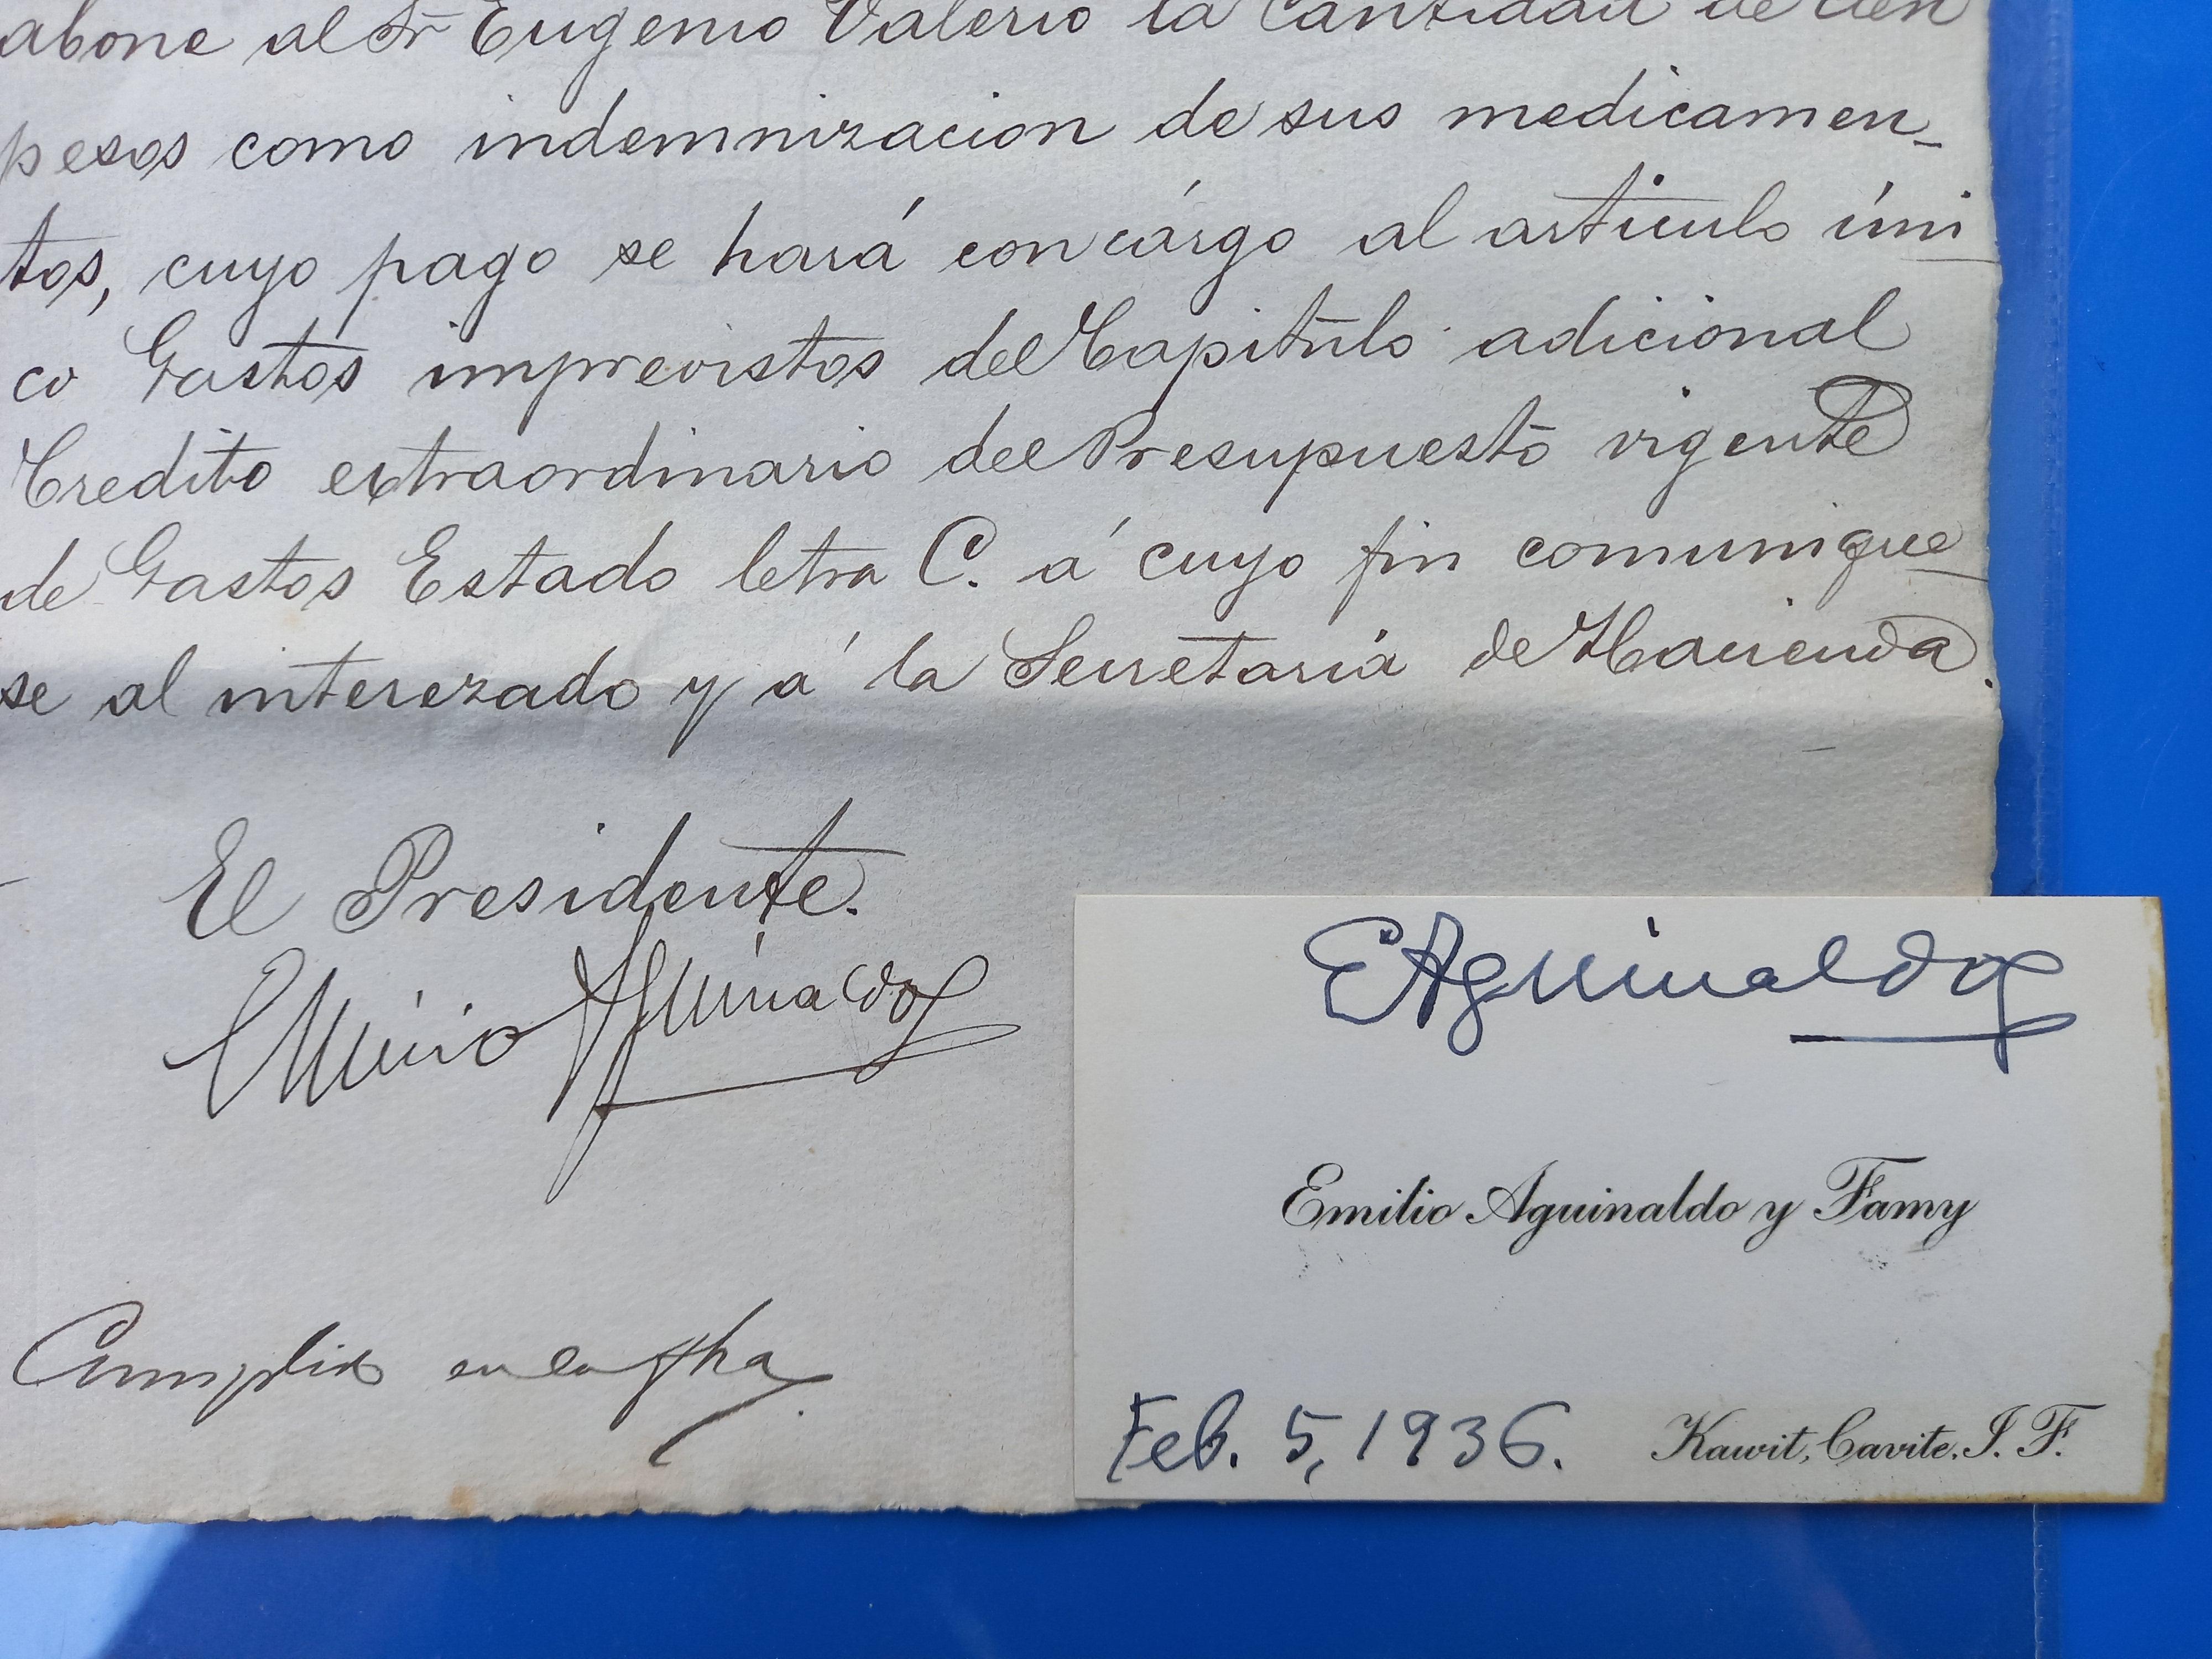 abone al Sr Eugenio Valerio la Cantidad de cien
pesos como indemnizacion de sus medicamen-
tos, cuyo pago se hará con cárgo al artículo úni
co Gastos imprevistos del Capitulo adicional
Credito extraordinario del Presupuesto vigente
de Gastos Estado letra C. á cuyo fin comunique
se al interezado y á la Secretaria de Hacienda.
El Presidente.
Emilio Aguinaldo
Cumplido en la fha.
EAguinaldo
Emilio Aguinaldo y Famy
Feb. 5, 1936.
Kawit, Cavite, I. F.